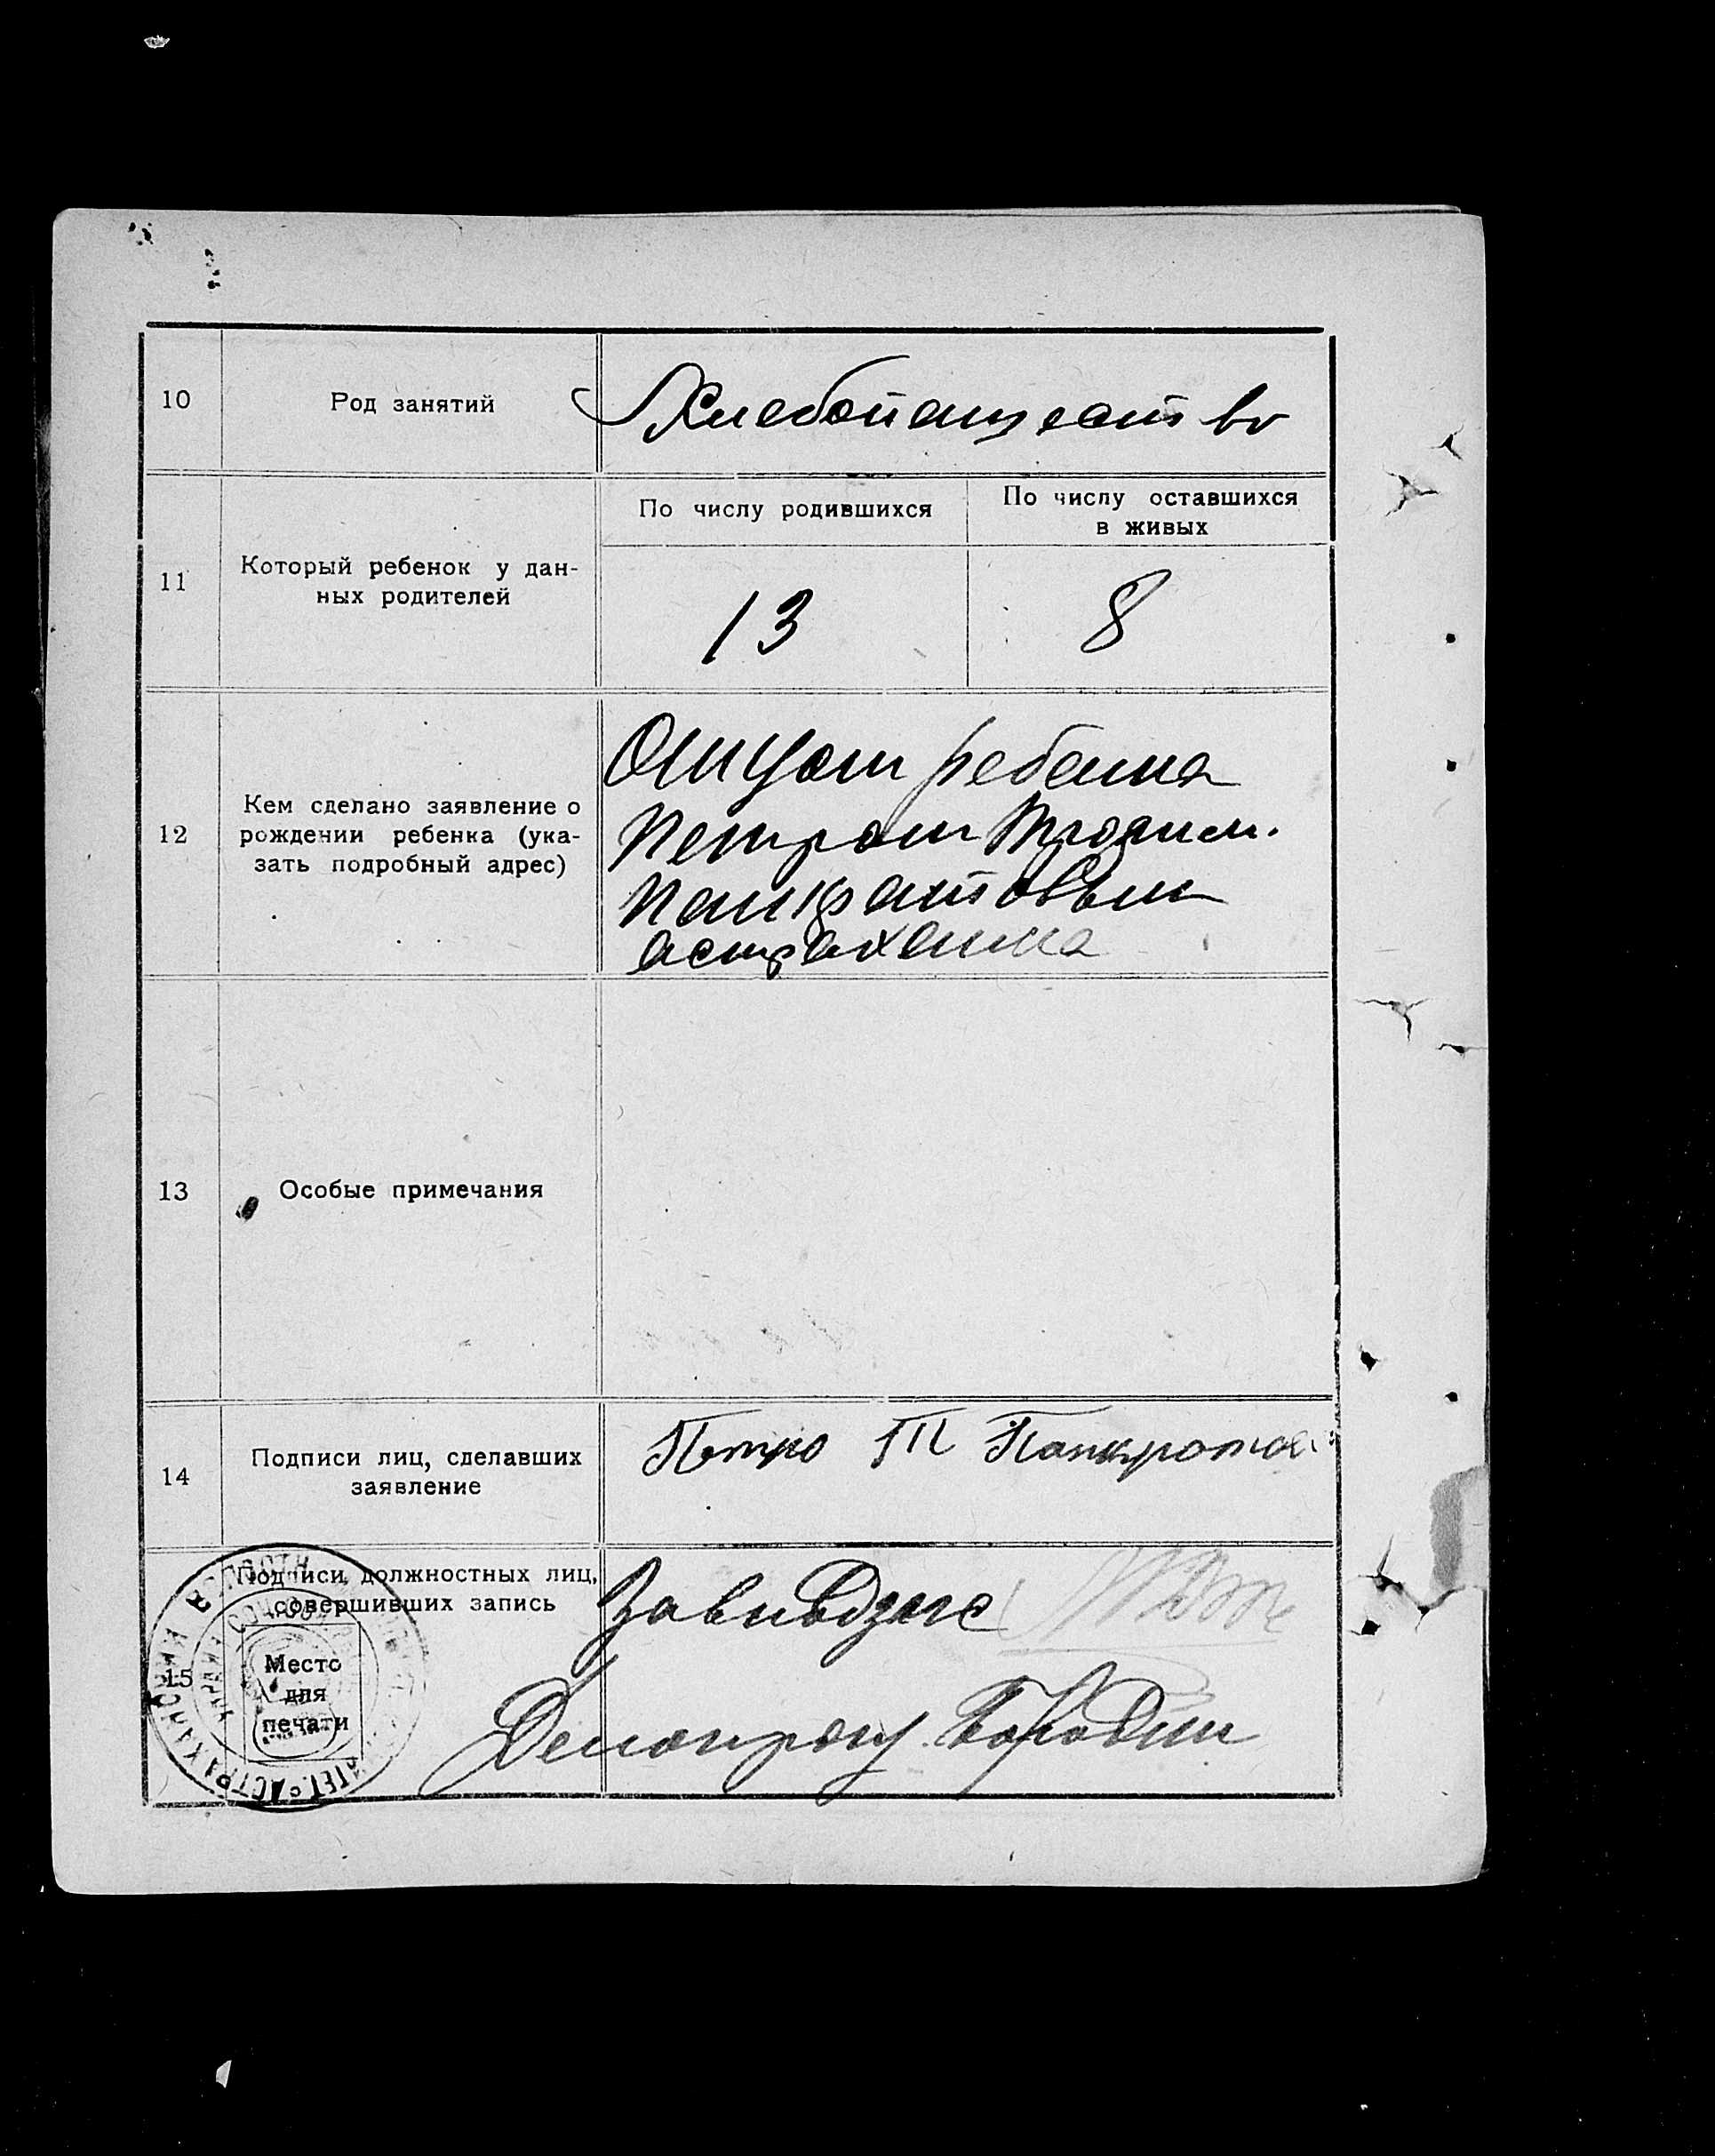 10 Род занятий Хлебопашество
11 Который ребенок у дан-
ных родителей
По числу родившихся
По числу оставшихся
в живых
13 8
12 Кем сделано заявление о
рождении ребенка (ука-
зать подробный адрес)
Отцом ребенка
Петром Трофим.
Панкратовым
Астраханка
13 Особые примечания
14 Подписи лиц, сделавших
заявление
Петро Т Панкратов
15 Подписи должностных лиц,
совершивших запись
Место
для
печати
Завподзагс
Делопроиз. Бородин
АСТРАХАНСКИЙ ВОЛОСТН